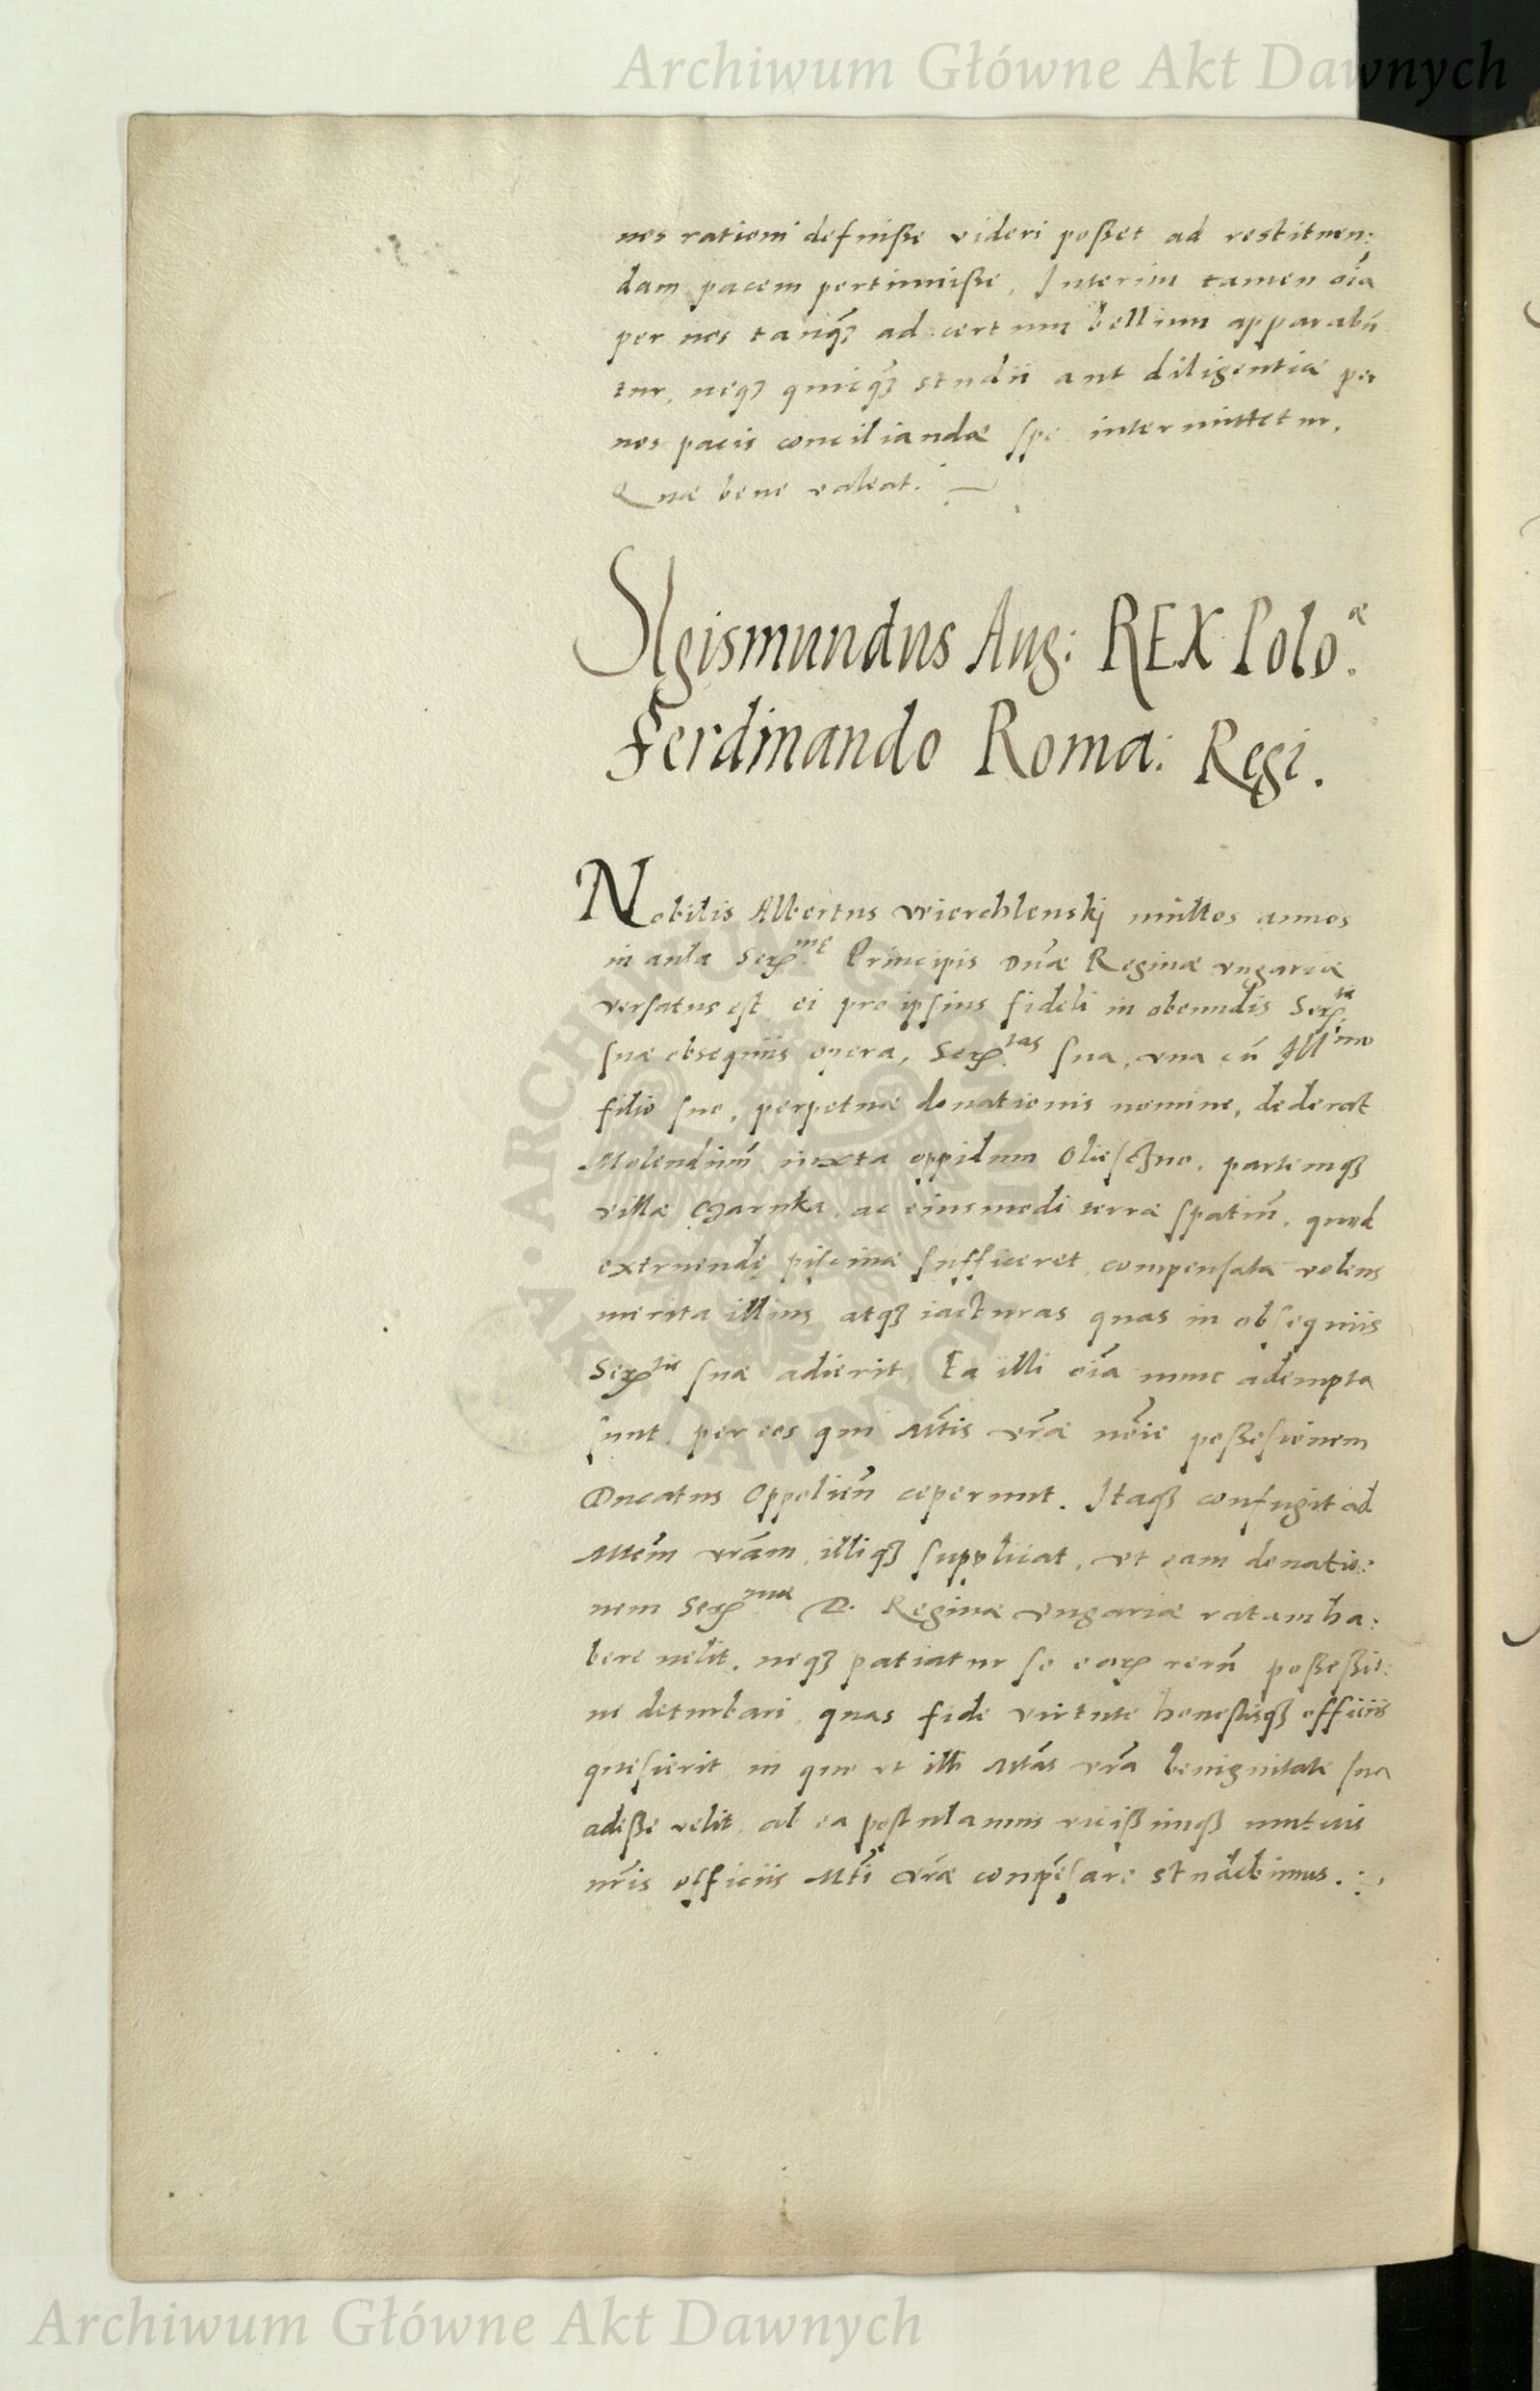 Archiwum Główne Akt Dawnych
nos rationi defuiße videri poßet ad restituen:
dam pacem pertinuiße, Interim tamen oĩa
per nos tanq̃ꝫ ad certum bellum apparabũ
tur, neqꝫ quicq̃ꝫ studii aut diligentiæ per
nos pacis conciliandæ spe intermittetur,
Quæ bene valeat.
SIgismundus Aug: REX Polo.æ
Ferdinando Roma: Regi.
Nobilis Albertus Wierchlenskj multos annos
in aula Serꝫ.mę Principis Dnæ Reginæ Vngariæ
versatus est, ei pro ipsius fideli in obeundis Serꝫ.tis
suæ obsequiis opera, Serꝫ.tas sua, vna cũ Ill.mo
filio suo, perpetuæ donationis nomine, dederat
Molendinũ iuxta oppidum Oliesẜno, partemqꝫ
villæ Czarnka, ac eiusmodi terræ spatiũ, quod
extruendę piscinæ sufficeret, compensata volens
merita illius atqꝫ iacturas quas in obsequiis
Serꝫ.tis suæ adierit, Ea illi oĩa nunc adempta
sunt, per eos qui Mt̃is vr̃æ nõie poßesionem
Ducatus Oppolieñ ceperunt. Itaqꝫ confugit ad
Mtẽm vrãm, illiqꝫ supplicat, vt eam donatio:
nem Serꝫ.mæ D. Reginæ Vngariæ ratam ha:
bere velit, neqꝫ patiatur se earꝝ rerũ poßeßio:
ne deturbari, quas fide virtute honestisqꝫ officiis
quesierit, in quo vt illi Mtãs vr̃a benignitate sua
adeße velit, ab ea postulamus vicißimqꝫ mutuis
nr̃is officiis Mt̃i vr̃æ conpẽsare studebimus.
ARCHIWUM GŁÓWNE AKT DAWNYCH
Archiwum Główne Akt Dawnych